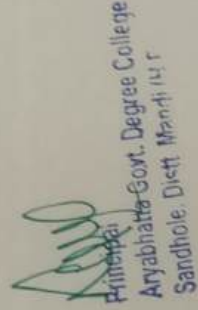 Principal
Aryabhatta Govt. Degree College
Sandhole, Distt Mandi